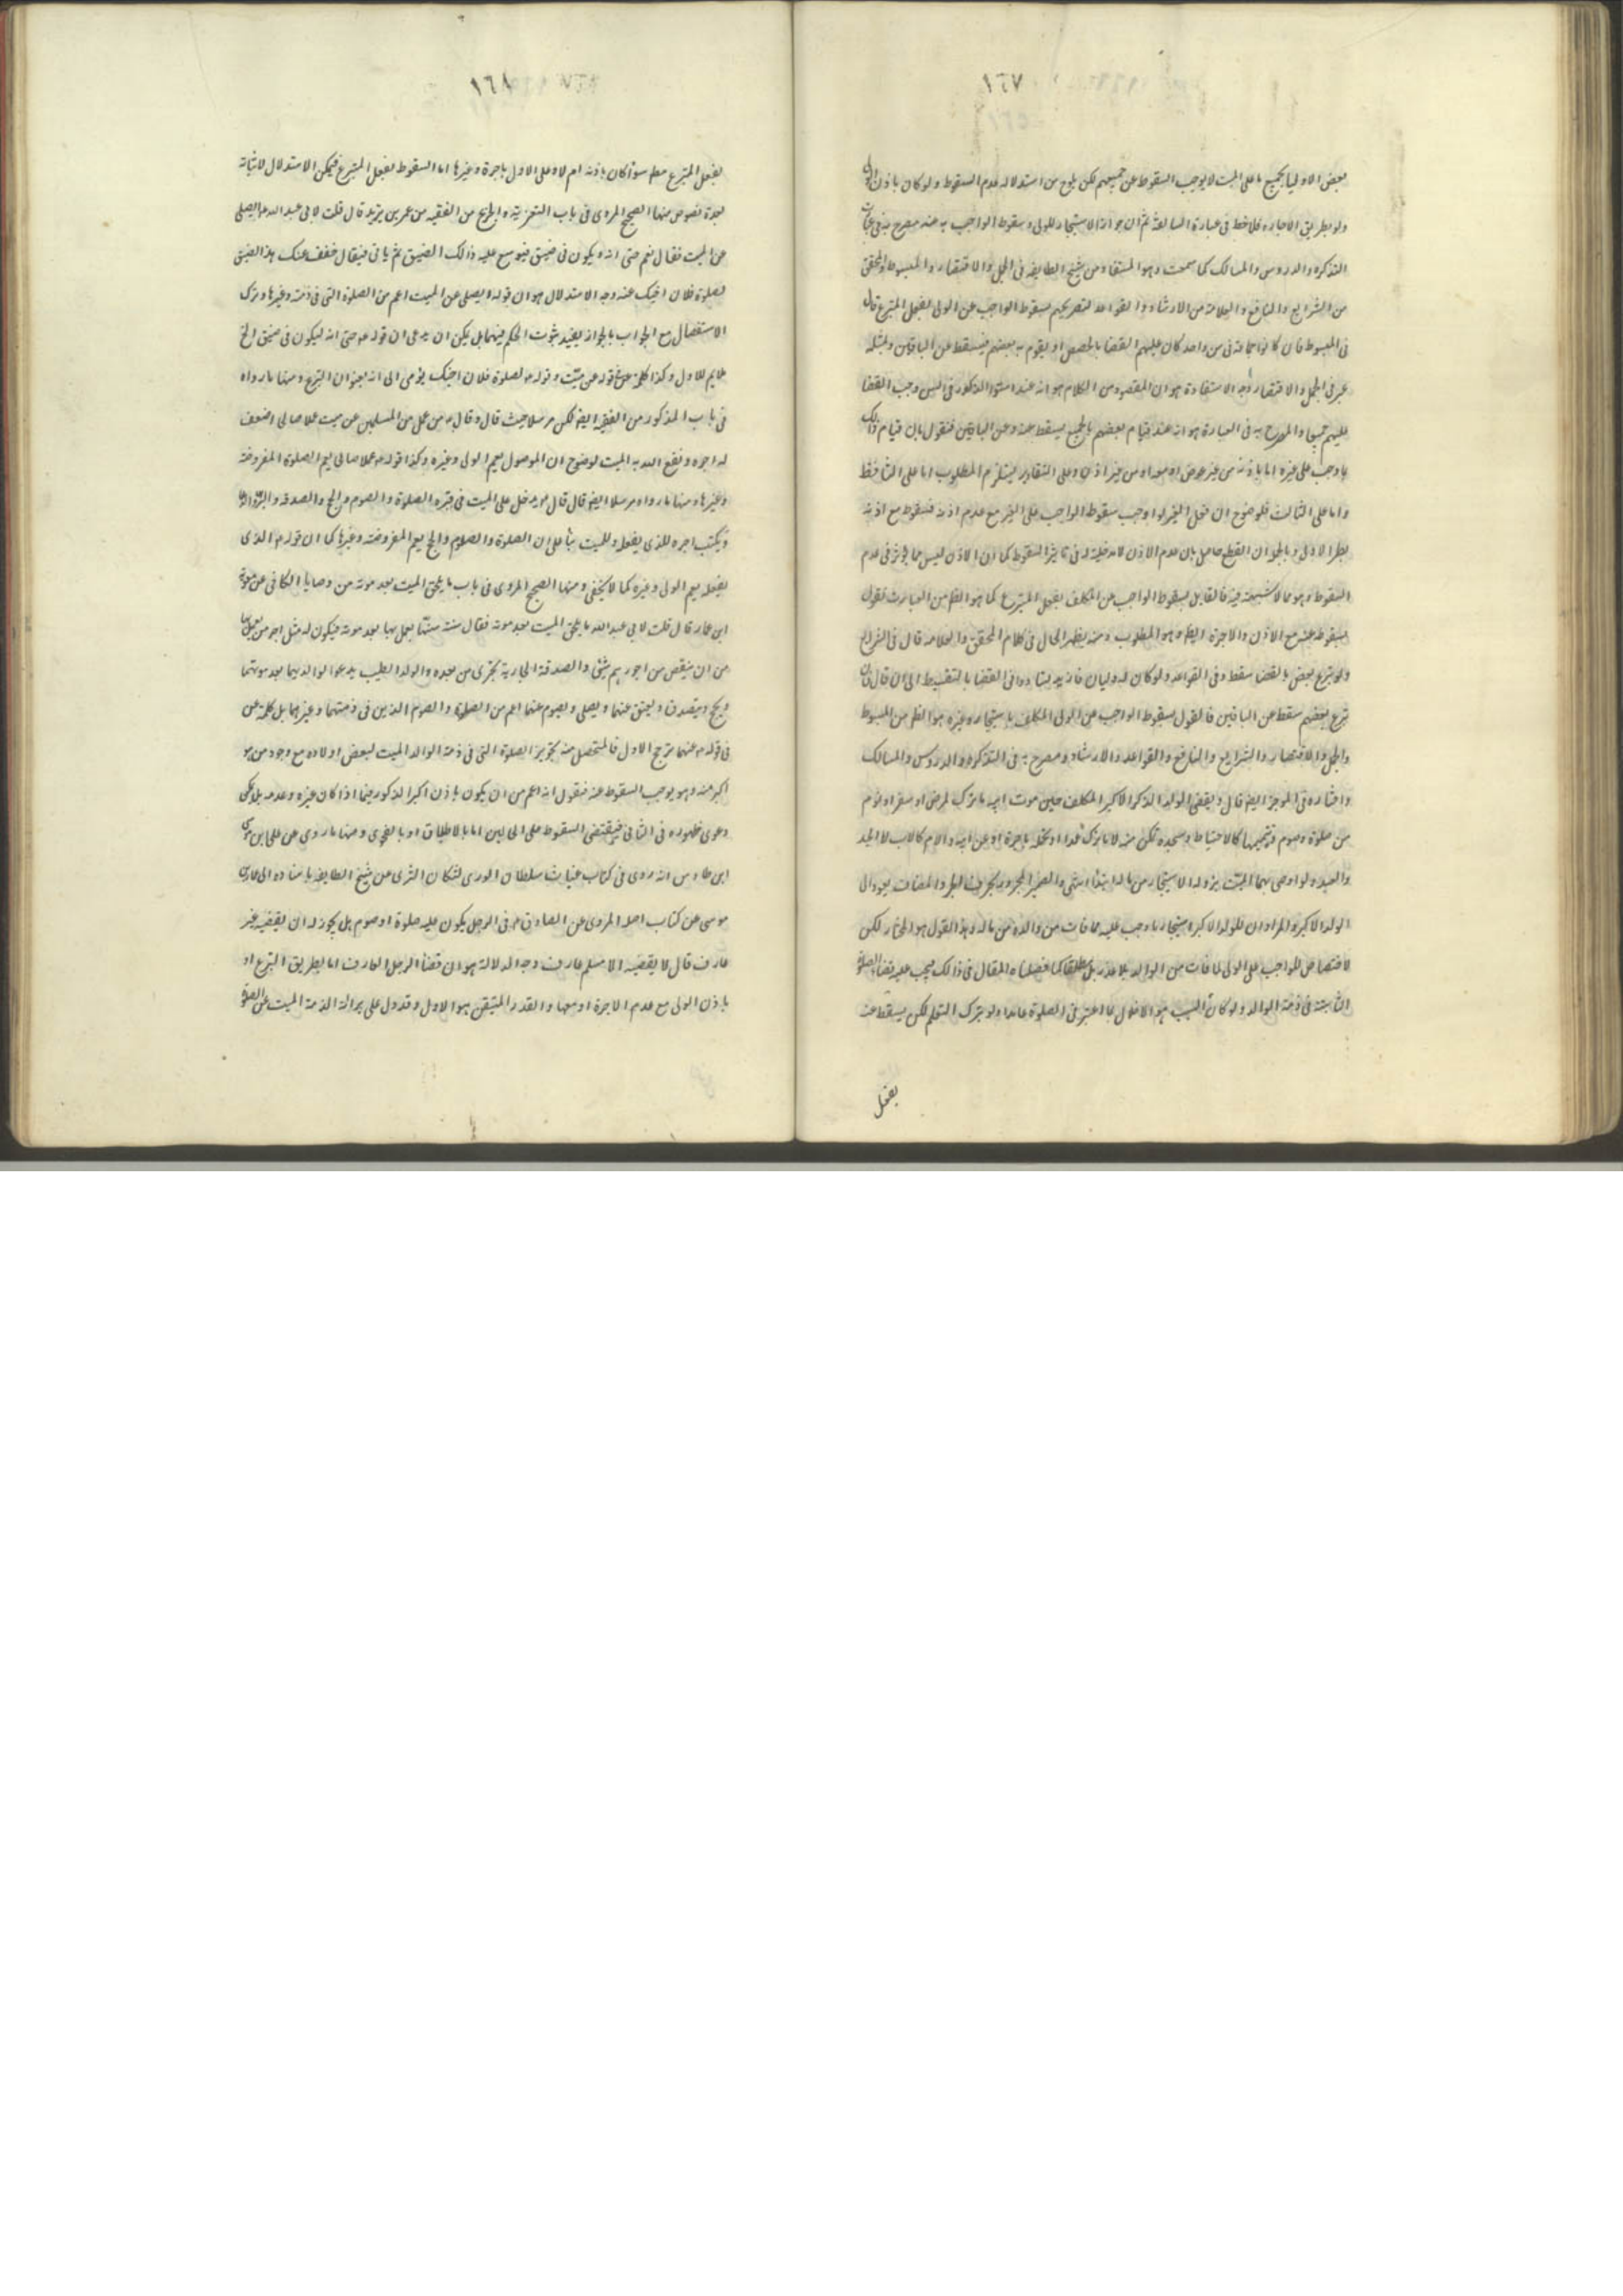 ١٦٧
بعض الاوليا بجميع ما على الميت لا يوجب السقوط عن جميعهم لكن يلوح من استدلاله عدم السقوط ولو كان باذن الولى
ولو بطريق الاجاره فلاحظ فى عبارة السالفة ثم ان جواز الاستيجار للولى وسقوط الواجب به عنه مصرح به فى
التذكره والدروس والمسالك كما سمعت وهو المستفاد من شيخ الطايفه فى الجمل والاقتصار والمبسوط والمحقق
من الشرايع والنافع والعلامة من الارشاد والقواعد لتصريحهم بسقوط الواجب عن الولى بفعل المتبرع قال
فى المبسوط فان كانوا جماعة فى سن واحد كان عليهم القضا بالحصص او يقوم به بعضهم فيسقط عن الباقين وبمثله
عبر فى الجمل والاقتصار وجه الاستفادة هو ان المقصود من الكلام هو انه عند استوا الذكور فى السن وجب القضا
عليهم جميعا والمصرح به فى العبارة هو انه عند قيام بعضهم بالجميع يسقط عنه وعن الباقين فنقول بان قيام ذلك
بما وجب على غيره اما باذنه من غير عوض او معه او من غير اذن وعلى التقادير يستلزم المطلوب اما على الثانى فظ
واما على الثالث فلوضوح ان فعل الغير لو اوجب سقوط الواجب على الغير مع عدم اذنه فسقوطه مع اذنه
بطر الاولى وبالجمله ان القطع حاصل بان عدم الاذن لا مدخلية له فى تاثير السقوط كما ان الاذن ليس مما يؤثر فى عدم
السقوط وهو مما لا شبهة فيه فالقايل بسقوط الواجب عن المكلف بفعل المتبرع كما هو الظم من العبارات نقول
بسقوطه عنه مع الاذن والاجرة ايضا وهو المطلوب ومنه يظهر الحال فى كلام المحقق والعلامه قال فى الشرايع
ولو تبرع بعض بالقضا سقط وفى القواعد ولو كان له وليان فانه يد لتساووا فى القضا بالتقسيط الى ان قال فان
تبرع بعضهم سقط عن الباقين فالقول بسقوط الواجب عن الولى المكلف باستيجار وغيره هو الظم من المبسوط
والجمل والاقتصار والشرايع والنافع والقواعد والارشاد ومصرح به فى التذكره والدروس والمسالك
واختاره فى الموجز ايضا قال ويقضى الولد الذكر الاكبر المكلف حين موت ابيه ما ترك لمرض او سفر او نوم
من صلوة وصوم وتتميمها كالاحتياط وسجده تمكن منه لا ما ترك عمدا او تحمله باجرة او عن ابيه والام كالاب لا الجد
والعبد ولو اوصى بهما الميت بزوله الاستيجار من ماله ابتدا انتهى والضمير المجرور بحرف الجر والمضاف يعود الى
الولد الاكبر والمراد ان للولد الاكبر استيجار ما وجب عليه مما فات من والده من ماله وهذا القول هو المختار لكن
لا اختصاص للواجب على الولى لما فات من الوالد بلا عذر بل مطلقا كما فصلناه المقال فى ذلك فيجب عليه قضا الصلوة
الثابتة فى ذمة الوالد ولو كان السبب هو الاخلال بما اعتبر فى الصلوة عامدا ولو بترك التعلم لكن يسقط عنه
بفعل
١٦٨
بفعل المتبرع مطم سوآ كان باذنه ام لا وعلى الاول باجرة وغيرها اما السقوط بفعل المتبرع فيمكن الاستدلال لاثباته
بعدة نصوص منها الصحيح المروى فى باب التعزية والجزع من الفقيه من عمر بن يزيد قال قلت لابى عبد الله ع ايصلى
عن الميت فقال نعم حتى انه ليكون فى ضيق فيوسع عليه ذالك الضيق ثم ياتى فيقال خفف عنك هذا الضيق
لصلوة فلان اخيك عنه وجه الاستدلال هو ان قوله ايصلى عن الميت اعم من الصلوة التى فى ذمته وغيرها وترك
الاستفصال مع الجواب بالجواز يفيد ثبوت الحكم فيهما بل يمكن ان يدعى ان قوله ع حتى انه ليكون فى ضيق الخ
ملايم للاول وكذا كلمة عن فى قوله عن ميت وقوله ع لصلوة فلان اخيك يؤمى الى انه بعنوان التبرع ومنها ما رواه
فى باب المذكور من الفقيه ايضا لكن مرسلا حيث قال وقال ع من عمل من المسلمين عن ميت عملا صالحا اضعف
له اجره ونفع الله به الميت لوضوح ان الموصول يعم الولى وغيره وكذا قوله ع عملا صالحا يعم الصلوة المفروضه
وغيرها ومنها ما رواه مرسلا ايضا قال قال ع يدخل على الميت فى قبره الصلوة والصوم والحج والصدقه والبر والدعا
ويكتب اجره للذى يفعله وللميت بنا على ان الصلوة والصوم والحج يعم المفروضه وغيرها كما ان قوله ع الذى
يفعله يعم الولى وغيره كما لا يخفى ومنها الصحيح المروى فى باب ما يلحق الميت بعد موته من وصايا الكافى عن معوية
ابن عمار قال قلت لابى عبد الله ما يلحق الميت بعد موته فقال سنة سنها يعمل بها بعد موته فيكون له مثل اجر من يعمل بها
من ان ينقص من اجورهم شئ والصدقة الجارية تجرى من بعده والولد الطيب يدعوا لوالديهما بعد موتهما
ويحج ويتصدق ويعتق عنهما ويصلى ويصوم عنهما اعم من الصلوة والصوم الذين فى ذمتهما وغيرهما بل كلمة عن
فى قوله ع عنهما يرجح الاول فالمتحصل منه تجويز الصلوة التى فى ذمة الوالد الميت لبعض اولاده مع وجود من هو
اكبر منه وهو يوجب السقوط عنه فنقول انه اعم من ان يكون باذن اكبر الذكور فيما اذا كان غيره وعدمه بل يمكن
دعوى ظهوره فى الثانى فيقتضى السقوط على الحالين اما بالاطلاق او بالفحوى ومنها ما روى عن على ابن موسى
ابن طاوس انه روى فى كتاب غياث سلطان الورى لسكان الثرى عن شيخ الطايفه باسناده الى عمار بن
موسى عن كتاب اصله المروى عن الصادق ع فى الرجل يكون عليه صلوة او صوم هل يجوز له ان يقضيه غير
عارف قال لا يقضيه الا مسلم عارف وجه الدلالة هو ان قضآ الرجل العارف اما بطريق التبرع او
باذن الولى مع عدم الاجرة او معها والقدر المتيقن هو الاول وقد دل على برائة الذمة الميت عن الصلوة